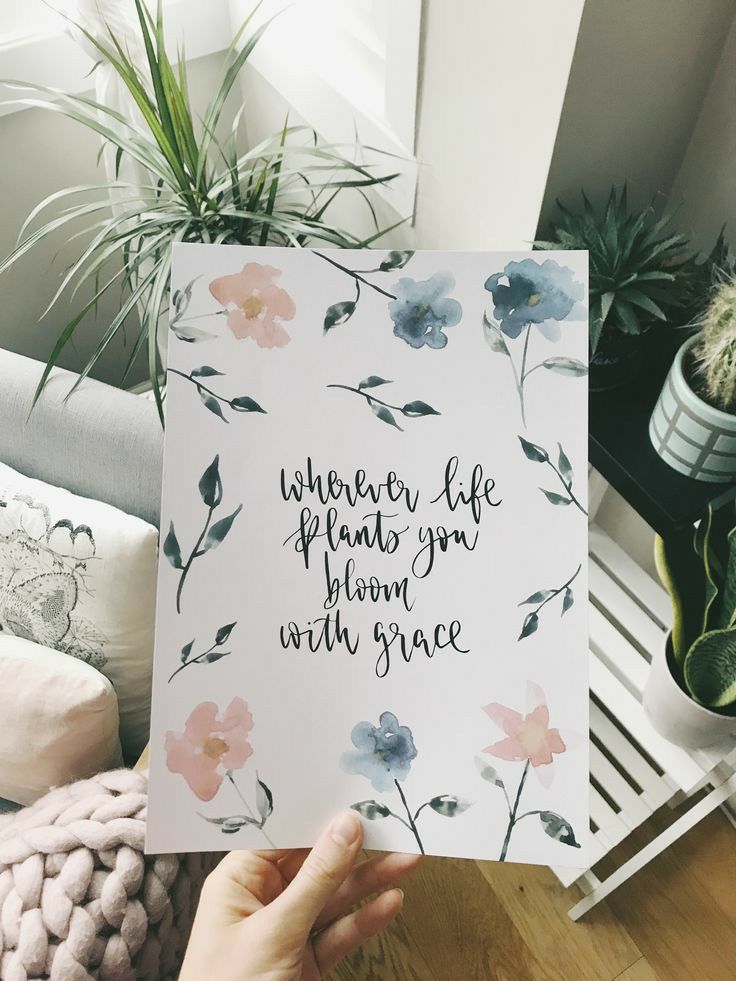 wherever life
plants you
bloom
with grace